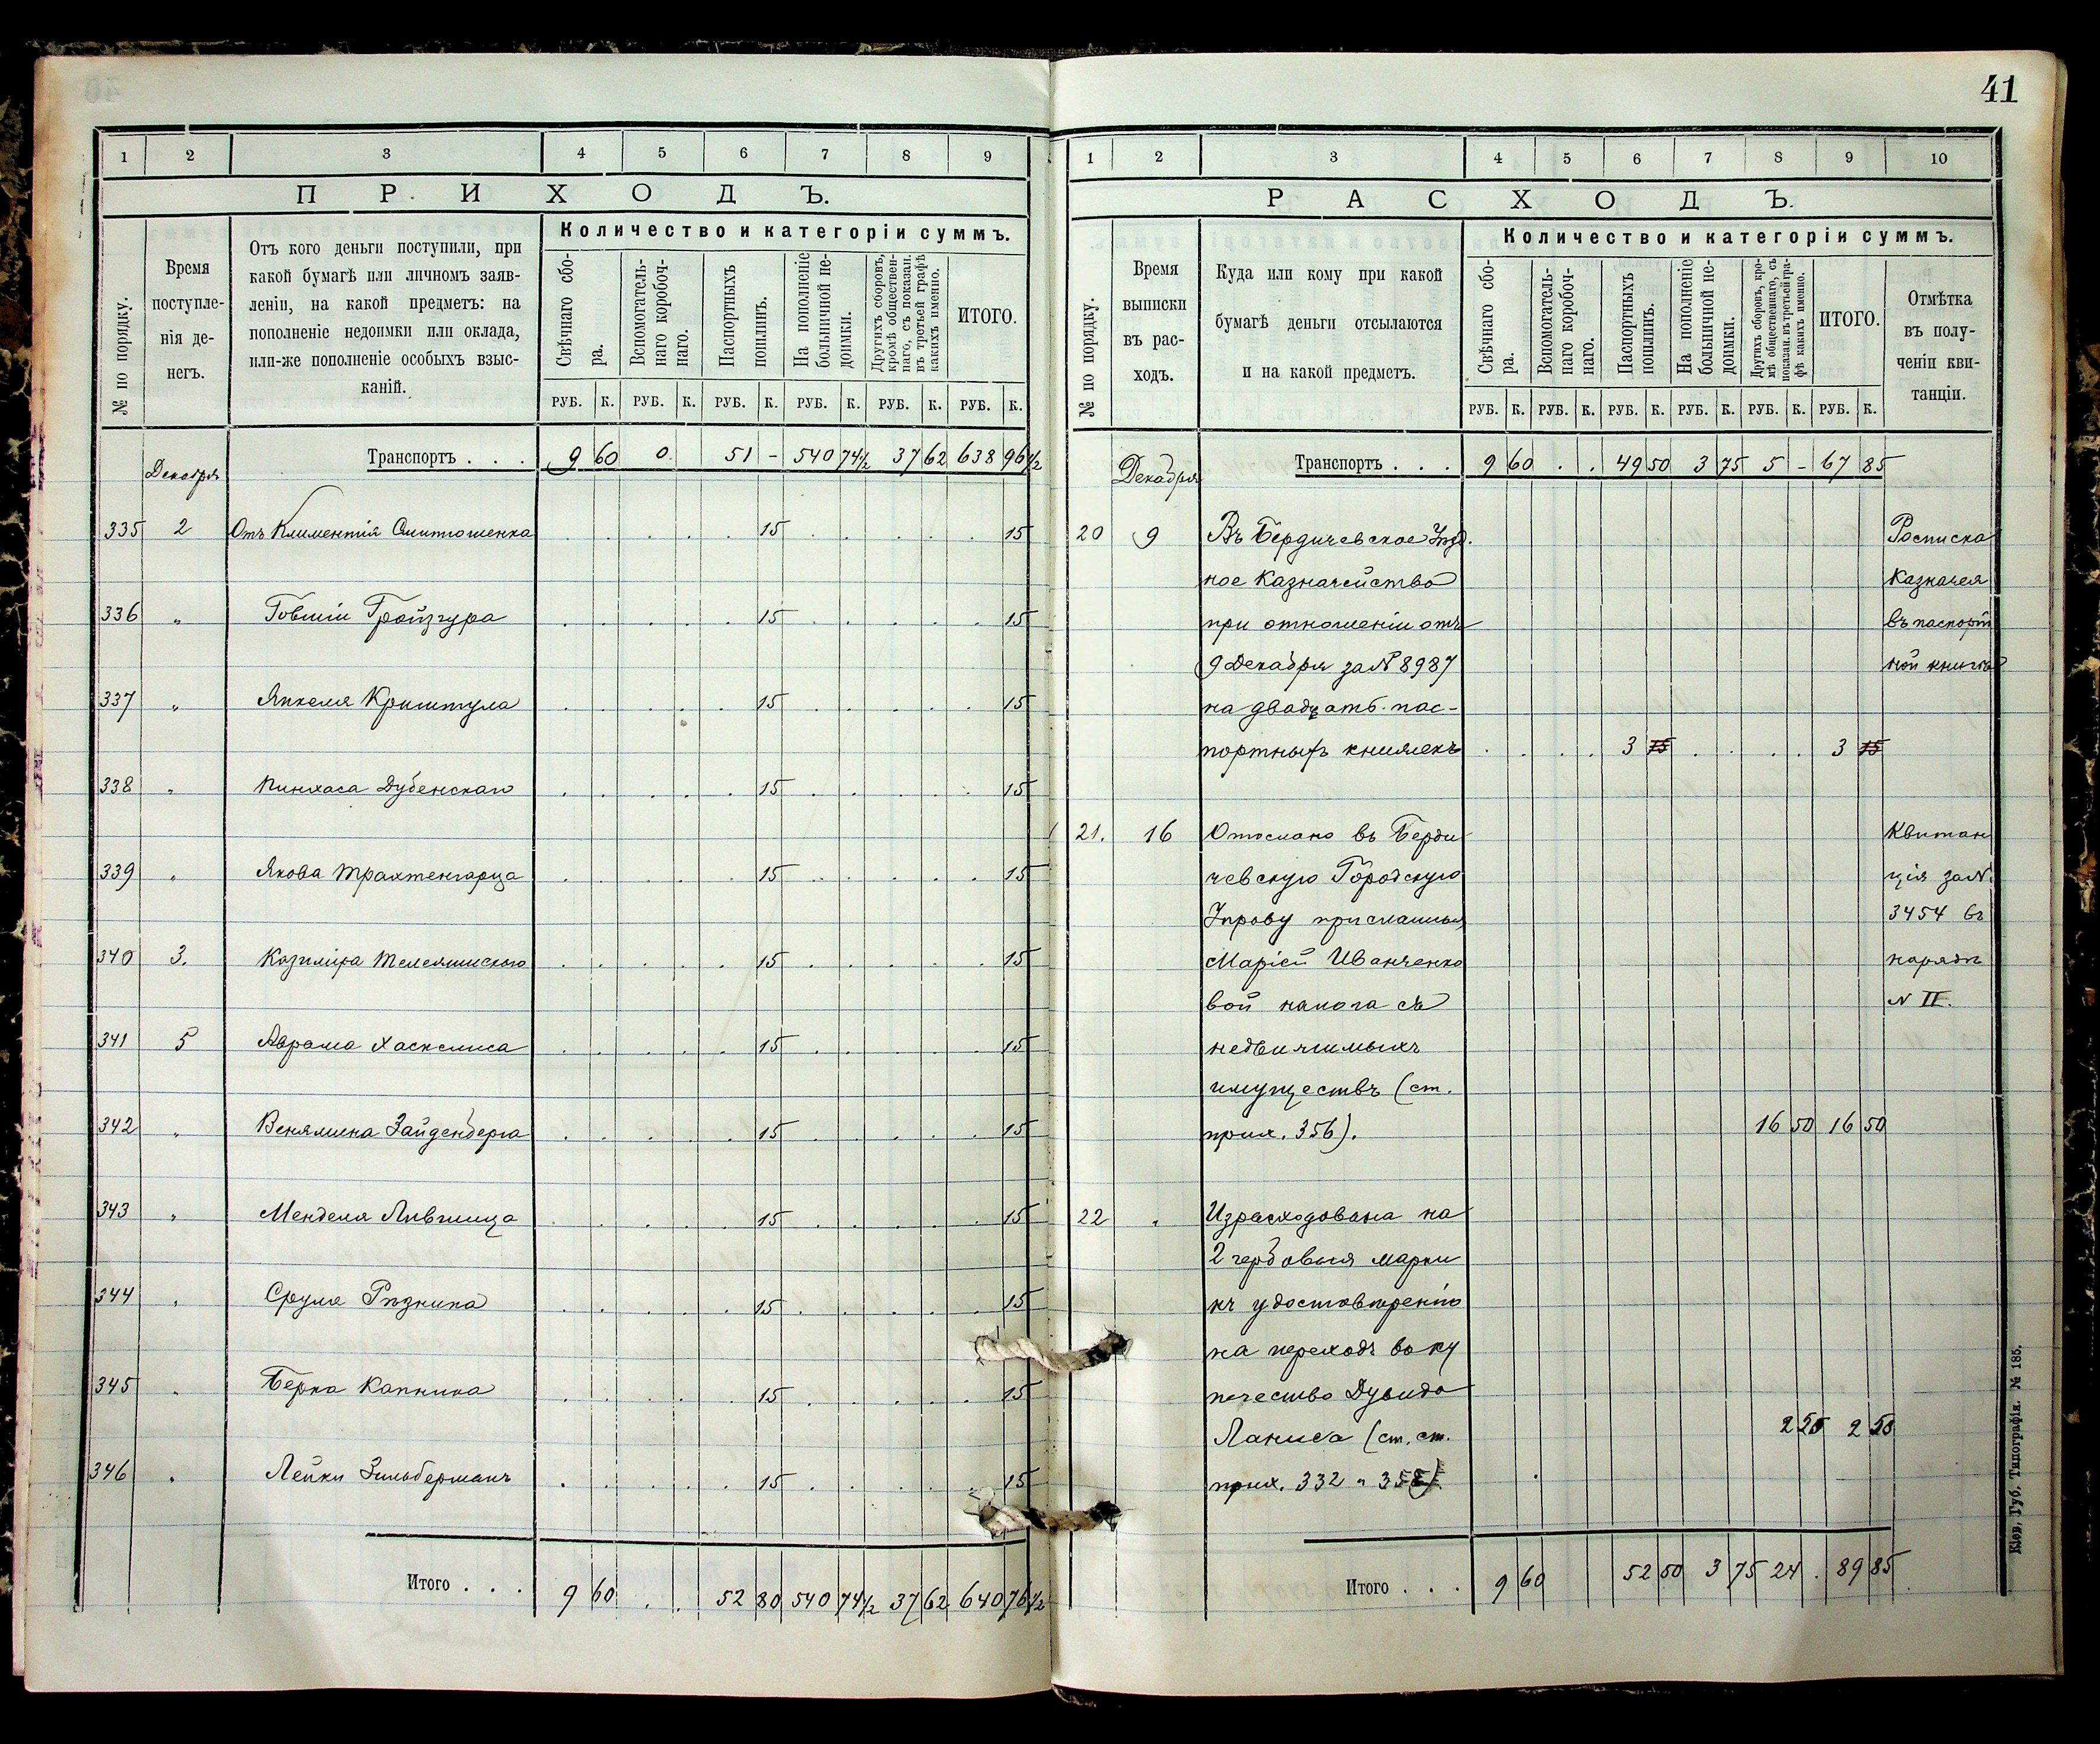 41
1 2 3 4 5 6 7 8 9
ПРИХОДЪ.
№ по порядку.
Время
поступле-
нія де-
негъ.
Отъ кого деньги поступили, при
какой бумагѣ или личномъ заяв-
леніи, на какой предметъ: на
пополненіе недоимки или оклада,
или-же пополненіе особыхъ взыс-
каній.
Количество и категоріи суммъ.
Свѣчнаго сбо-
ра.
Вспомогатель-
наго коробоч-
наго.
Паспортныхъ
пошлинъ.
На пополненіе
больничной не-
доимки.
Другихъ сборовъ,
кромѣ обществен-
наго, съ показан.
въ третьей графѣ
какихъ именно.
ИТОГО.
РУБ. К. РУБ. К. РУБ. К. РУБ. К. РУБ. К. РУБ. К.
Транспортъ . . . 9 60 0 51 - 540 74½ 37 62 638 96½
Декабря
335 2 Отъ Климентія 15 15
336 " Говшіи Гройзгура 15 15
337 " Янкеля Криштула 15 15
338 " Пинхаса Дубенскаго 15 15
339 " Якова Трахтенгарца 15 15
340 3. Казиміра 15 15
341 5 Аврама Хаскелиса 15 15
342 " Веніамина Зайденберга 15 15
343 " Менделя Лившица 15 15
344 " Сруля Рѣзника 15 15
345 " Берка Капника 15 15
346 " Лейки Зильберманъ 15 15
Итого . . . 9 60 . . 52 80 540 74½ 37 62 640 76½
1 2 3 4 5 6 7 8 9 10
РАСХОДЪ.
№ по порядку.
Время
выписки
въ рас-
ходъ.
Куда или кому при какой
бумагѣ деньги отсылаются
и на какой предметъ.
Количество и категоріи суммъ.
Свѣчнаго сбо-
ра.
Вспомогатель-
наго коробоч-
наго.
Паспортныхъ
пошлинъ.
На пополненіе
больничной не-
доимки.
Другихъ сборовъ, кро-
мѣ общественнаго, съ
показан. въ третьей гра-
фѣ какихъ именно.
ИТОГО.
Отмѣтка
въ полу-
ченіи кви-
танціи.
РУБ. К. РУБ. К. РУБ. К. РУБ. К. РУБ. К. РУБ. К.
Транспортъ . . . 9 60 . . 49 50 3 75 5 - 67 85
Декабря
20 9 Въ Бердичевское Уѣзд- Росписка
ное Казначейство Казначея
при отношеніи отъ въ паспорт
9 Декабря за № 8987 ной книгѣ
на двадцать пас-
портныхъ книжекъ 3 15 3 15
21. 16 Отослано въ Берди Квитан
чевскую Городскую ція за №
Управу присланныя 3454 въ
Маріей Иванченко нарядѣ
вой налога съ № II.
недвижимыхъ
имуществъ (ст.
прих. 356). 16 50 16 50
22 " Израсходована на
2 гербовыя марки
къ удостовѣренію
на переходъ въ ку
печество Дувида
(ст. ст. 2 50 2 50
прих. 332 и 358).
Итого . . . 9 60 52 50 3 75 24 . 89 85
Кіев. Губ. Типографія. № 185.